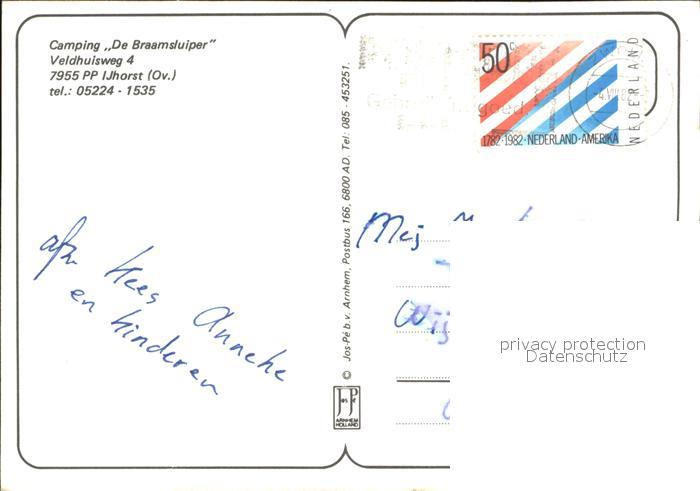 Camping „De Braamsluiper"
Veldhuisweg 4
7955 PP IJhorst (Ov.)
tel.: 05224 - 1535
afz. Kees Anneke
en kinderen
© Jos-Pé b.v. Arnhem, Postbus 166, 6800 AD. Tel: 085 - 453251.
JosPé
ARNHEM
HOLLAND
50c
1782·1982·NEDERLAND·AMERIKA
NEDERLAND
goed
Mej
privacy protection
Datenschutz